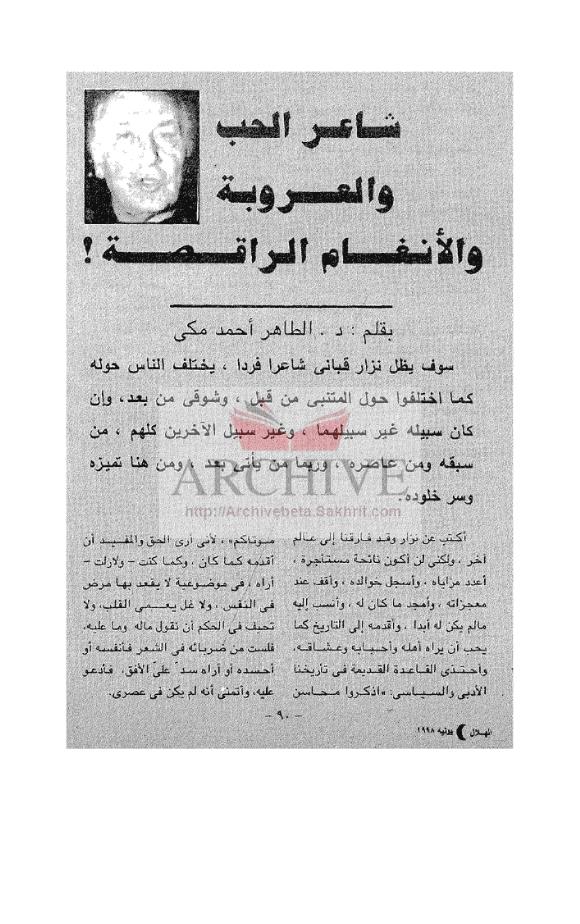 شاعر الحب
والعروبة
والأنغام الراقصة !
بقلم : د . الطاهر أحمد مكى
سوف يظل نزار قبانى شاعرا فردا ، يختلف الناس حوله
كما اختلفوا حول المتنبى من قبل ، وشوقى من بعد، وإن
كان سبيله غير سبيلهما ، وغير سبيل الآخرين كلهم ، من
سبقه ومن عاصره ، وربما من يأتى بعد ، ومن هنا تميزه
وسر خلوده.
ARCHIVE
http://Archivebeta.Sakhrit.com
أكتب عن نزار وقد فارقنا إلى عالم
آخر ، ولكنى لن أكون نائحة مستأجرة ،
أعدد مزاياه ، وأسجل خوالده ، وأقف عند
معجزاته ، وأمجد ما كان له ، وأنسب إليه
مالم يكن له أبدا . وأقدمه إلى التاريخ كما
يحب أن يراه أهله وأحبابه وعشاقه،
وأحتذى القاعدة القديمة فى تاريخنا
الأدبى والسياسى: «اذكروا محاسن
موتاكم» ، لأنى أرى الحق والمفيد أن
أقدمه كما كان ، وكما كنت – ولازلت –
أراه ، فى موضوعية لا يقعد بها مرض
فى النفس ، ولا غل يعمى القلب، ولا
تحيف فى الحكم أن نقول ماله وما عليه.
فلست من ضربائه فى الشعر فأنفسه أو
أحسده أو أراه سداً على الأفق، فأدعو
عليه، وأتمنى أنه لم يكن فى عصرى.
– ٩٠ –
الهلال يونيه ١٩٩٨